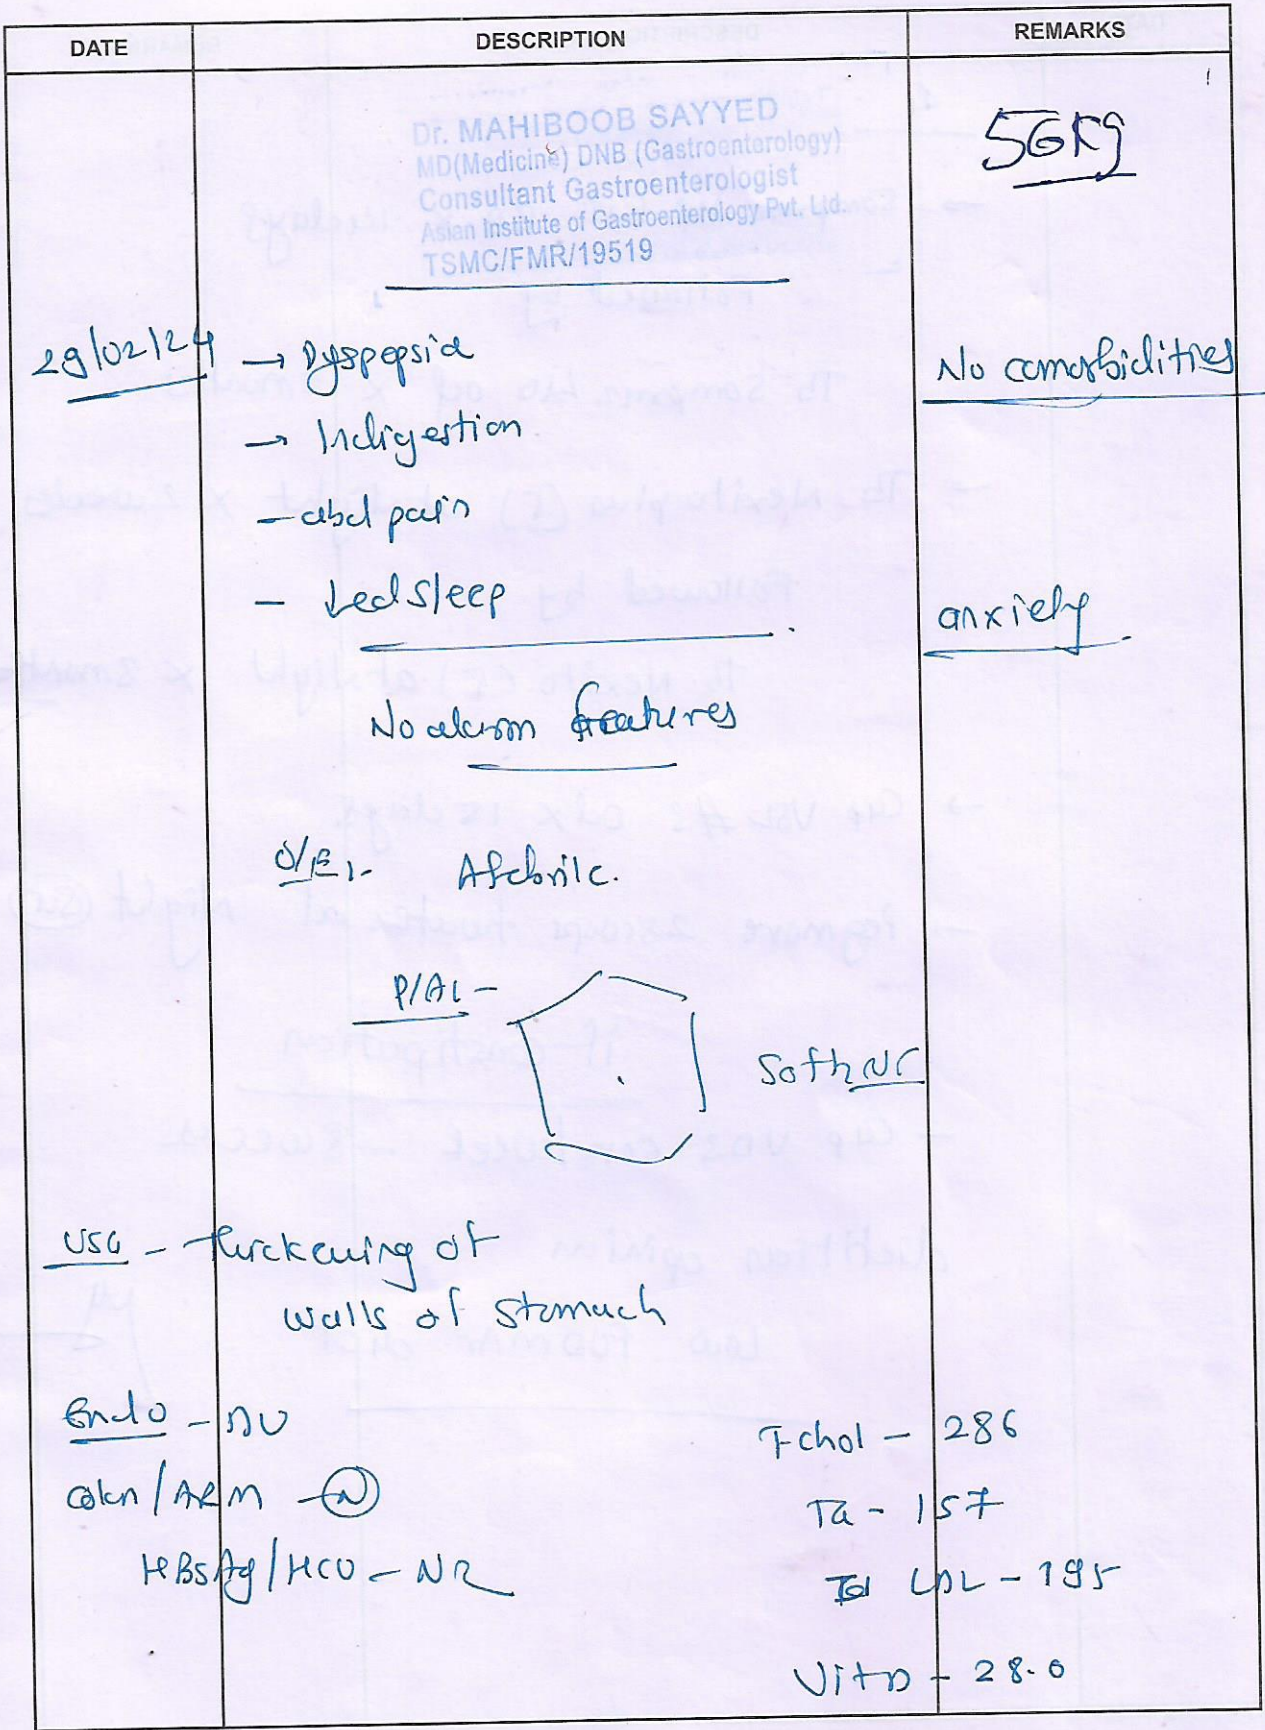 DATE DESCRIPTION REMARKS
Dr. MAHIBOOB SAYYED
MD(Medicine) DNB (Gastroenterology)
Consultant Gastroenterologist
Asian Institute of Gastroenterology Pvt. Ltd.
TSMC/FMR/19519
56Kg
29/02/24 → Dyspepsia
No comorbidities
→ Indigestion
- abd pain
- ↓ed sleep
anxiety
No alarm features
O/E:- Afebrile.
P/A:-
Soft
USG - thickening of
walls of stomach
Endo - DU
T chol - 286
colon/ARM - N
TG - 157
HBsAg/HCV - NR
LDL - 195
Vit D - 28.0